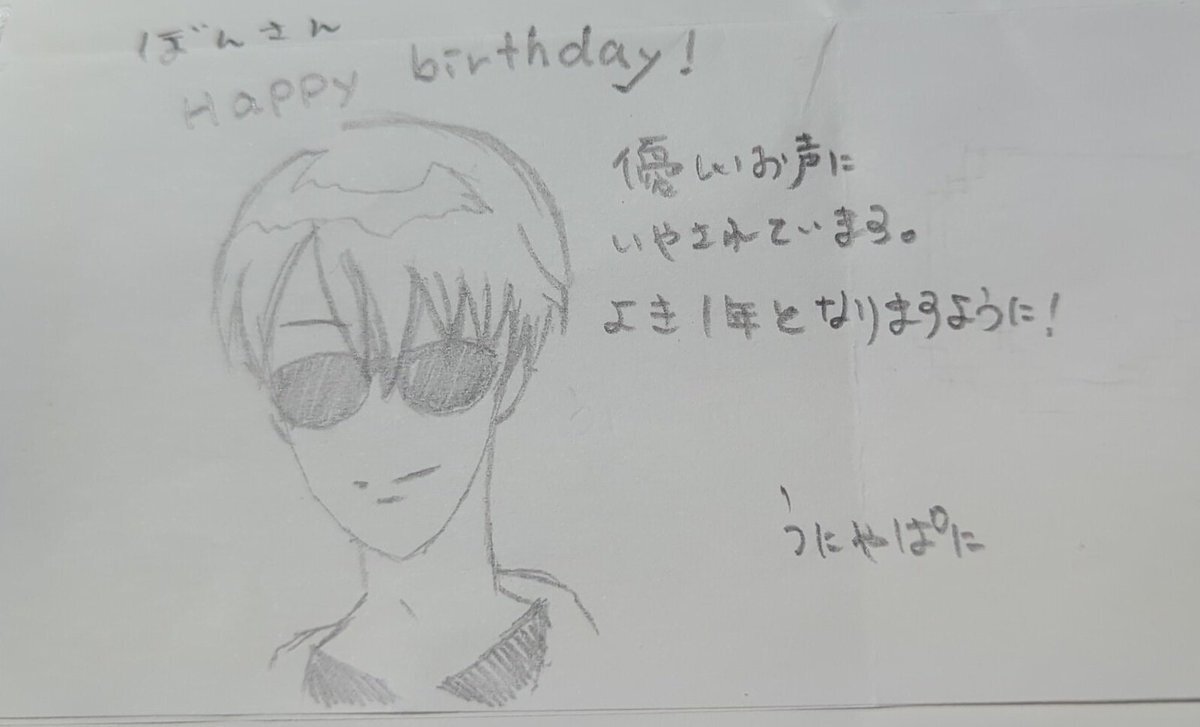 ぼんさん
Happy birthday!
優しいお声に
いやされています。
よき1年となりますように!
うにやぱに